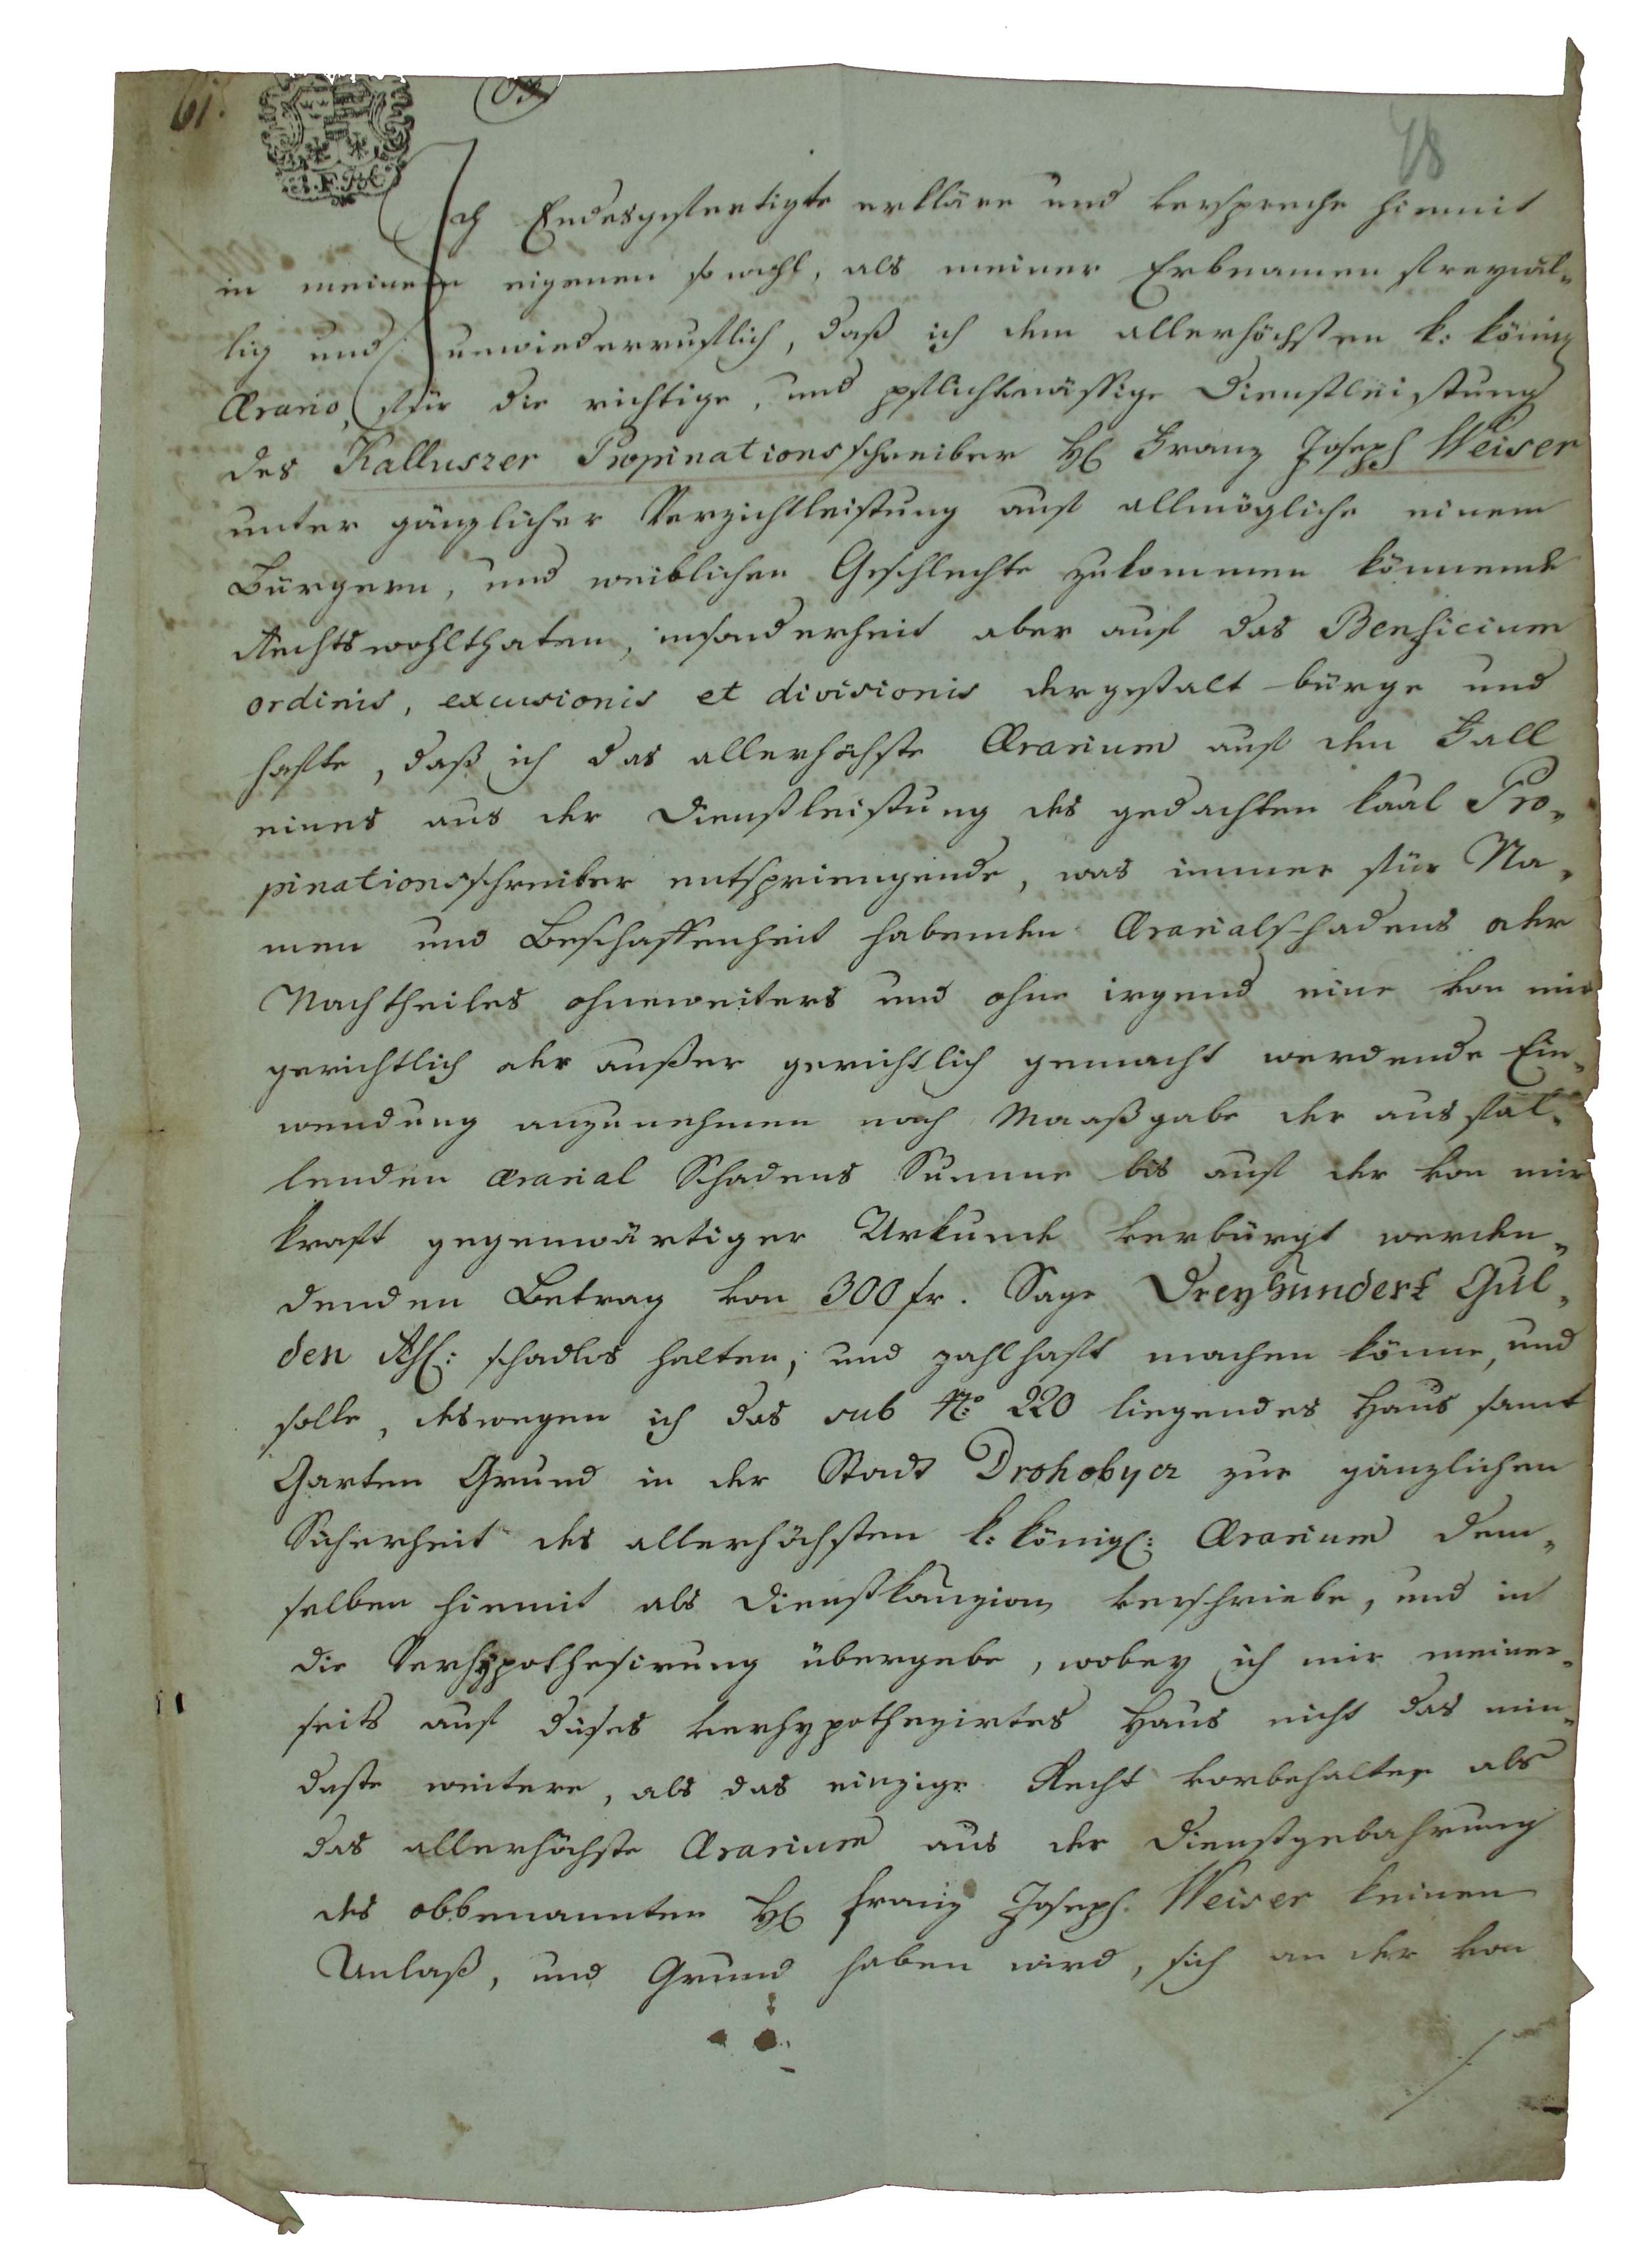 61.
78
Ich Endesgefertigte erkläre und verspreche hiemit
in meinem eigenen sowohl, als meiner Erbnamen freywil-
lig und unwiederruflich, daß ich dem allerhöchsten k: königl
Ærario, für die richtige, und pflichtmässige Dienstleistung
des Kalluszer Propinationsschreiber H Franz Joseph Weiser
unter gänzlicher Verzichtleistung auf allmögliche einem
Bürgern, und weiblichen Geschlechte zukommen könnende
Rechtswohlthaten, insonderheit aber auf das Benficium
ordinis, excusionis et divisionis dergestalt bürge und
hafte, daß ich das allerhöchste Ærarium auf den Fall
eines aus der Dienstleistung des gedachten kaal Pro-
pinationsschreiber entspriengende, was immer für Na-
men und Beschaffenheit habenden Ærarialschadens oder
Nachtheiles ohneweiters und ohne irgend eine von mir
gerichtlich oder außer gerichtlich gemacht werdende Ein-
wendung anzunehmen nach Maaßgabe der ausfal-
lenden ærarial Schadens Summe bis auf der von mir
kraft gegenwärtiger Urkunde verbürgt werden-
denden Betrag von 300 fr. Sage Dreyhundert Gul-
den Rh: schadlos halten, und zahlhaft machen könne, und
solle, deswegen ich das sub No 220 liegendes Haus samt
Garten Grund in der Stadt Drohobycz zur gänzlichen
Sicherheit des allerhöchsten k: königl: Ærarium dem-
selben hiemit als Dienstkauzion verschriebe, und in
die Verhypothesirung übergebe, wobey ich mir meiner-
seits auf dieses verhypothezirtes Haus nicht das min-
deste weitere, als das einzige Recht vorbehalten als
das allerhöchste Ærarium aus der Dienstgebahrung
des obbenannten H Franz Joseph Weiser keinen
Anlaß, und Grund haben wird, sich an der von